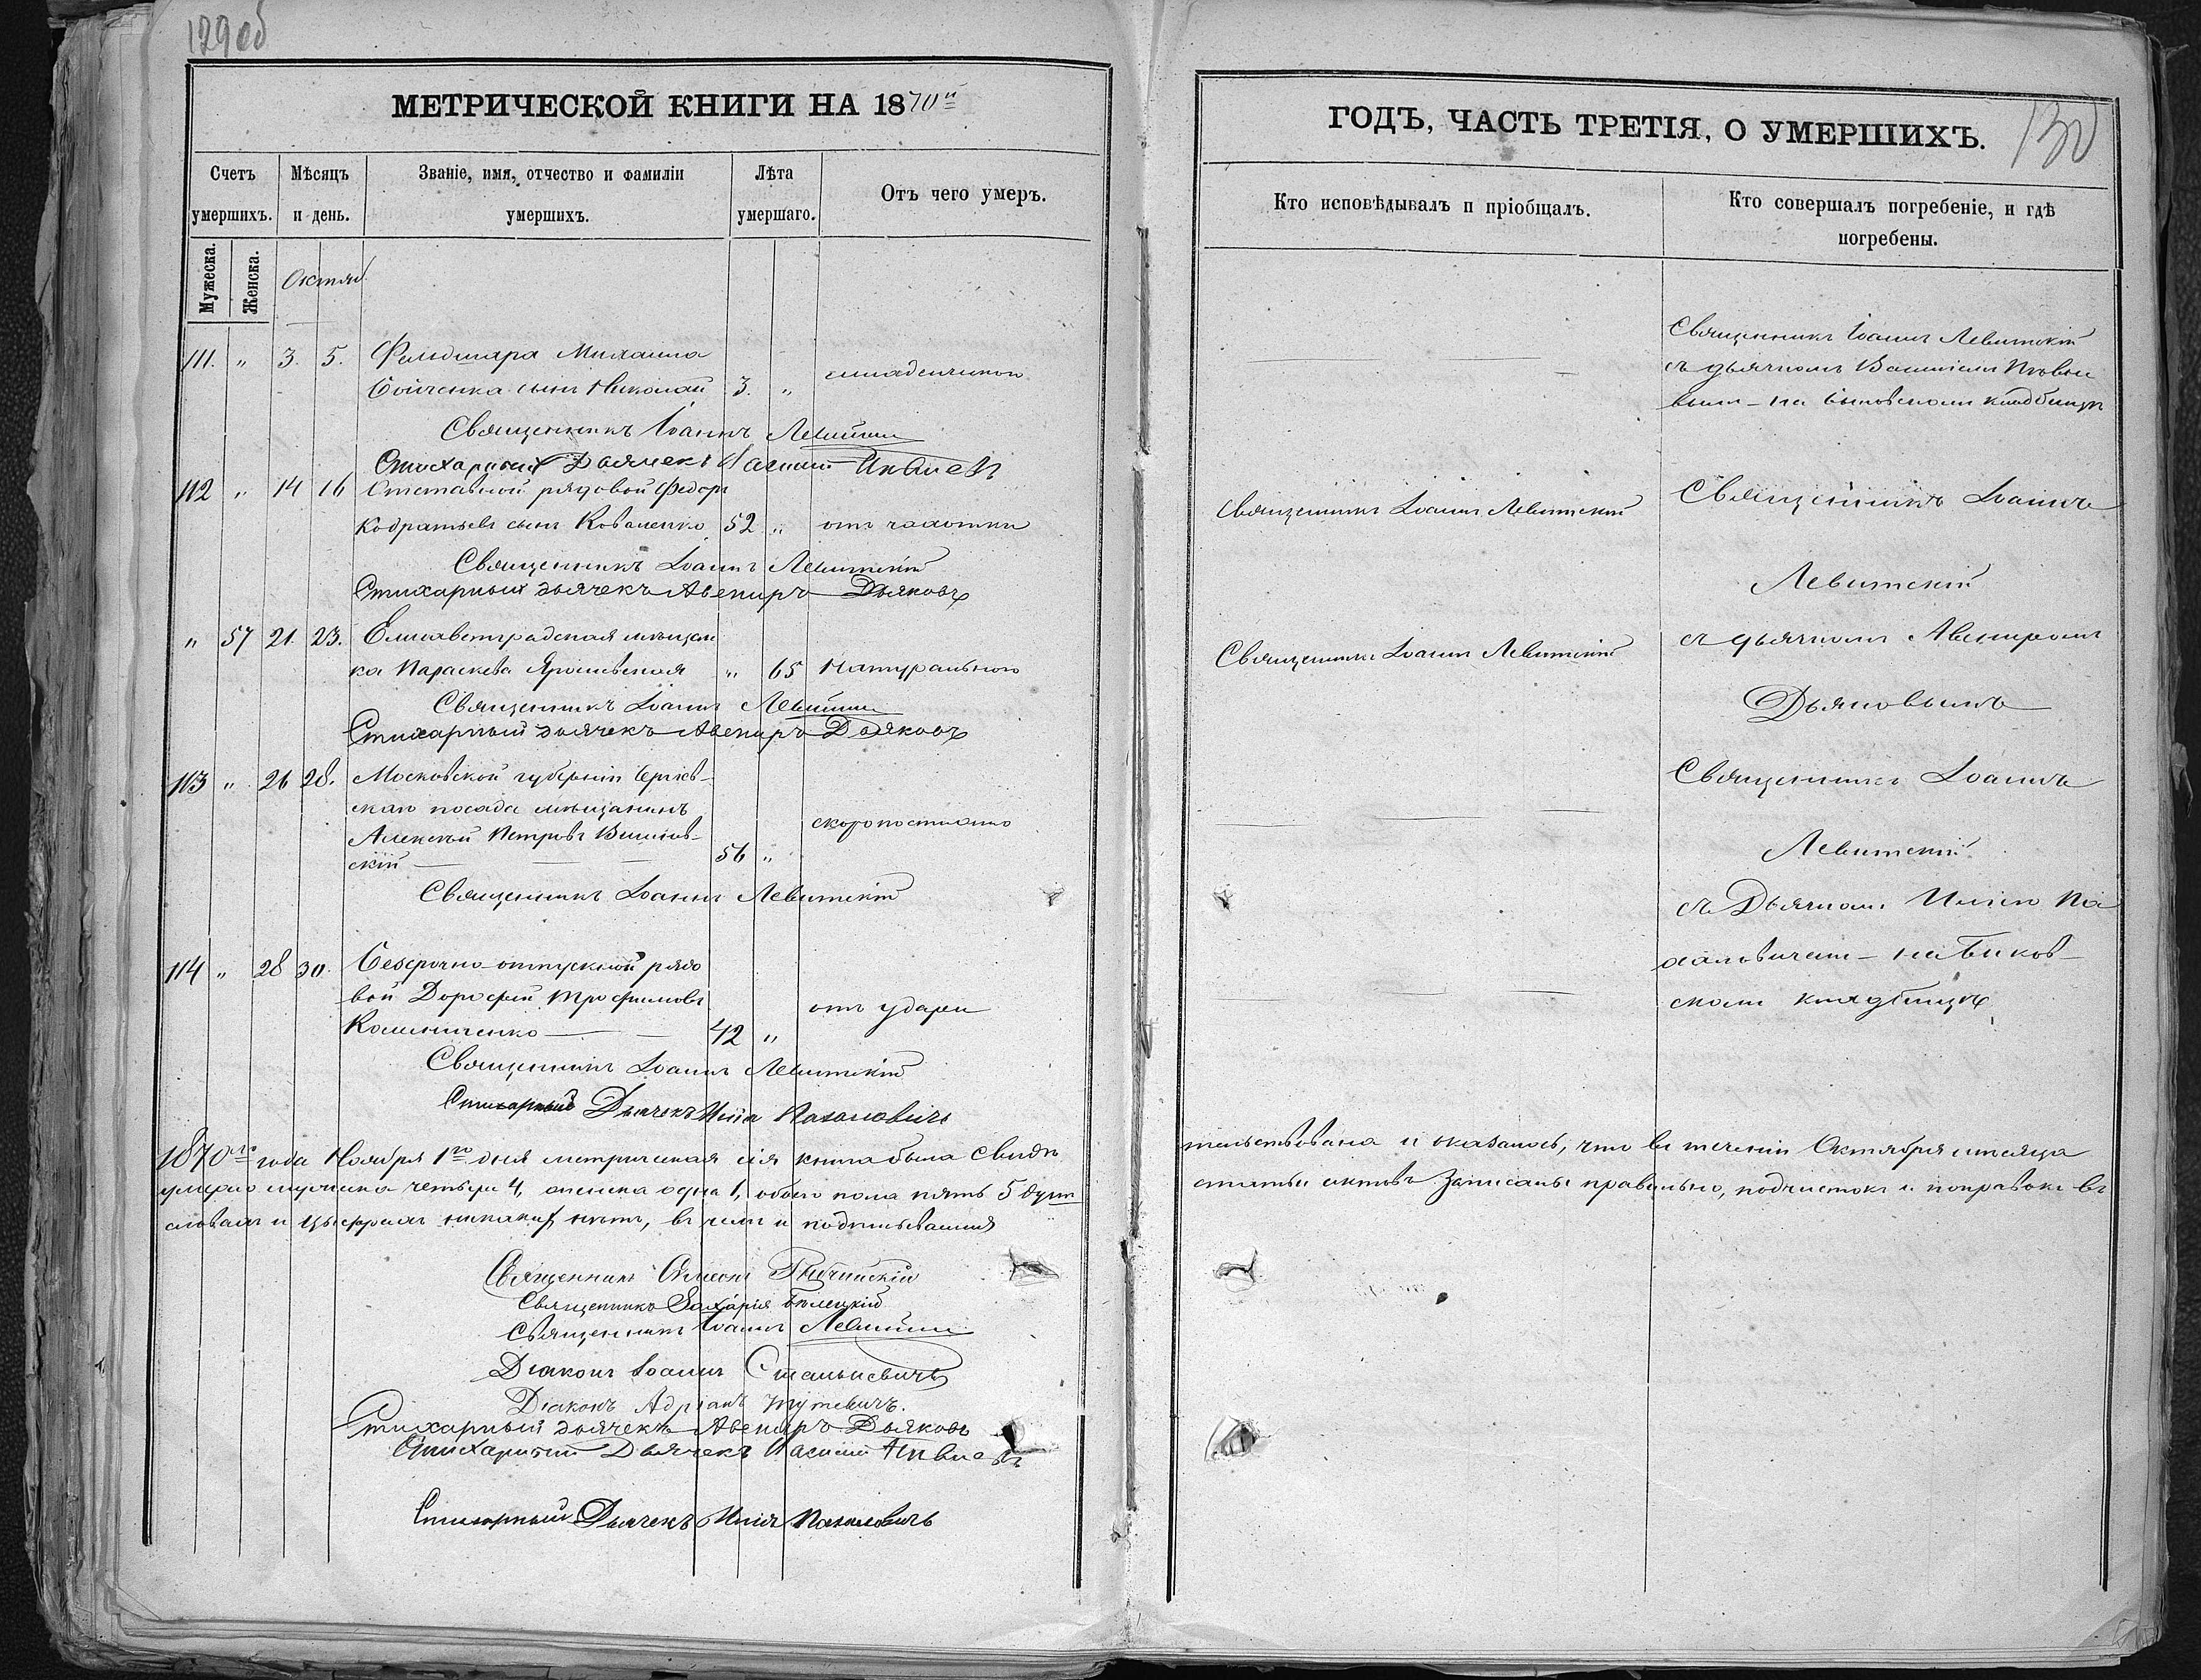 129об
МЕТРИЧЕСКОЙ КНИГИ НА 1870й
Счетъ умершихъ.
Мѣсяцъ и день.
Званіе, имя, отчество и фамиліи умершихъ.
Лѣта умершаго.
Отъ чего умеръ.
Мужеска.
Женска.
Октяб
111. " 3. 5. Фельдшера Михаила
сынъ Николай 3. "
Священникъ Іоаннъ Левитскій
Стихарный Дьячекъ
112 " 14 16 Отставной рядовой Федоръ
Кодратьевъ сынъ Коваленко 52 " отъ чахотки
Священникъ Іоаннъ Левитскій
Стихарный дьячекъ Авениръ Дьяковъ
" 57 21. 23. Елисаветградская мѣщан
ка Параскева " 65 Натурально
Священникъ Іоаннъ Левитскій
Стихарный дьячекъ Авениръ Дьяковъ
113 " 26 28. Московской губерніи Сергіев-
скаго посада мѣщанинъ
Алексѣй Петровъ
скій 56 " скоропостижно
Священникъ Іоаннъ Левитскій
114 " 28 30. Безсрочно-отпускной рядо
вой Дорофей Трофимовъ
Калениченко 42 " отъ удара
Священникъ Іоаннъ Левитскій
Стихарный Дьячекъ Илія Пахаловичъ
1870го года Ноября 1го дня метрическая сія книга была свидѣ
умерло мужеска четыре 4, женска одна 1, обоего пола пять 5 душъ
словахъ и цыфрахъ никакихъ нѣтъ, въ чемъ и подписываемся
Священникъ
Священникъ Захарія Бѣлецкій
Священникъ Іоаннъ Левитскій
Діаконъ Іоаннъ Станкевичъ
Діаконъ Адріанъ
Стихарный дьячекъ Авениръ Дьяковъ
Стихарный Дьячекъ
Стихарный Дьячекъ Илія Пахаловичъ
ГОДЪ, ЧАСТЬ ТРЕТІЯ, О УМЕРШИХЪ.
130
Кто исповѣдывалъ и пріобщалъ.
Кто совершалъ погребеніе, и гдѣ погребены.
Священникъ Іоаннъ Левитскій
съ дьячкомъ
вымъ – на кладбищѣ
Священникъ Іоаннъ Левитскій
Священникъ Іоаннъ
Левитскій
Священникъ Іоаннъ Левитскій
съ дьячкомъ Авениромъ
Дьяковымъ
Священникъ Іоаннъ
Левитскій
съ Дьячкомъ Иліею Па
халовичемъ – на Быков-
скомъ кладбищѣ
тельствована и оказалось, что въ теченіи Октября мѣсяца
статьи актовъ записаны правильно, подчистокъ и поправокъ въ